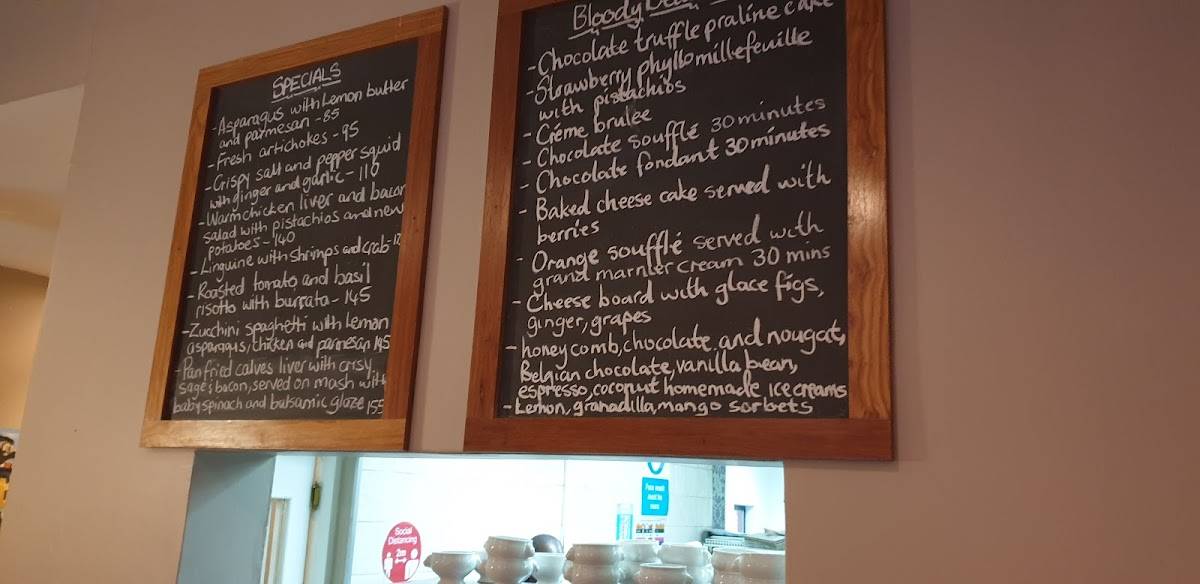 SPECIALS
- Asparagus with Lemon butter
and parmesan - 85
- Fresh artichokes - 95
- Crispy salt and pepper squid
with ginger and garlic - 110
- Warm chicken liver and bacon
salad with pistachios and new
potatoes - 140
- Linguine with shrimps and crab -
- Roasted tomato and basil
risotto with burrata - 145
- Zucchini spaghetti with Lemon
asparagus, chicken and parmesan 145
- Pan fried calves liver with crisy
sage & bacon, served on mash with
baby spinach and balsamic glaze 155
Bloody
- Chocolate truffle praline cake
- Strawberry phyllo millefeuille
with pistachios
- Créme brulee
- Chocolate soufflé 30 minutes
- Chocolate fondant 30 minutes
- Baked cheese cake served with
berries
- Orange soufflé served with
grand marnier cream 30 mins
- Cheese board with glace figs,
ginger, grapes
- honeycomb, chocolate and nougat,
Belgian chocolate, vanilla bean,
espresso, coconut homemade ice creams
- Lemon, granadilla, mango sorbets
Social
Distancing
2m